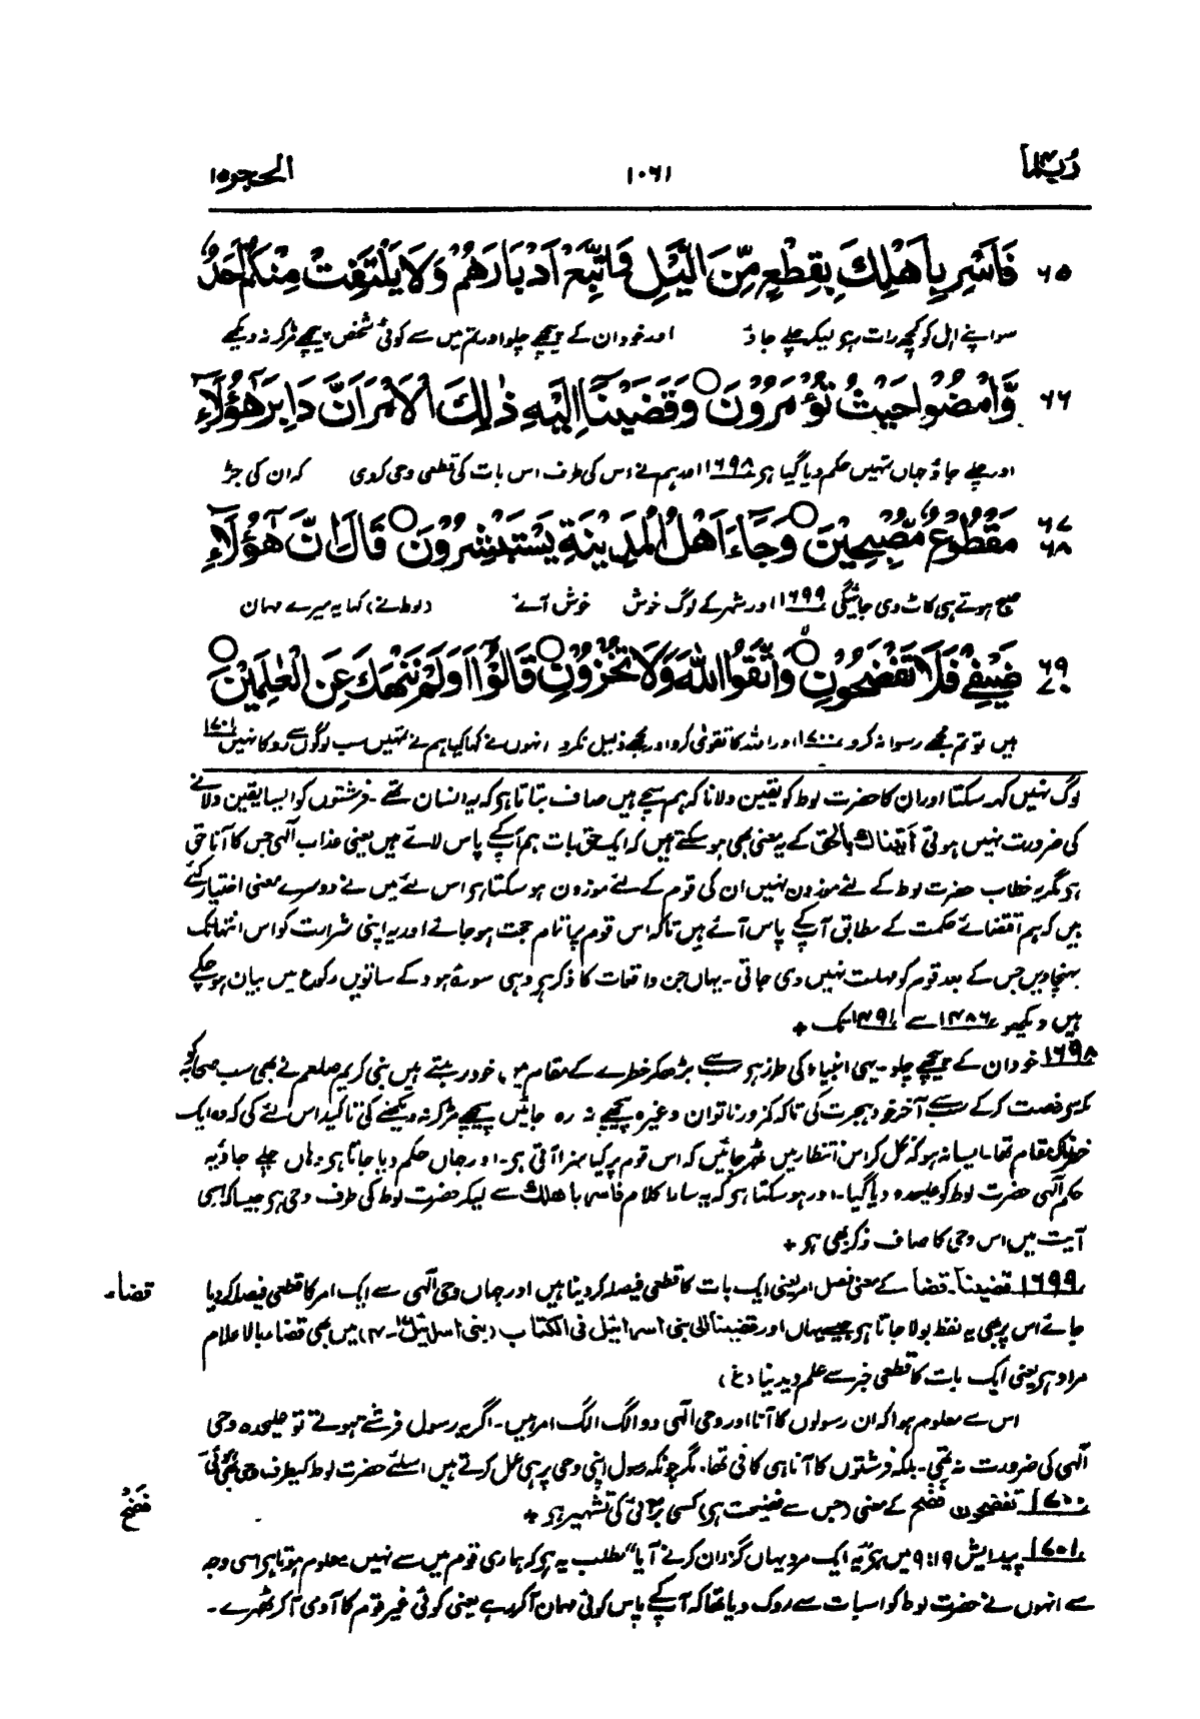 ربما ١٤
١٠٦١
الحجر ١٥
٦٥ فَاَسْرِ بِاَهْلِكَ بِقِطْعٍ مِّنَ الَّيْلِ وَاتَّبِعْ اَدْبَارَهُمْ وَلَا يَلْتَفِتْ مِنْكُمْ اَحَدٌ
سو اپنے اہل کو کچھ رات رہو لیکر چلے جاؤ اور خود ان کے پیچھے چلو اور تم میں سے کوئی شخص پیچھے مڑکر نہ دیکھے
٦٦ وَّامْضُوْا حَيْثُ تُؤْمَرُوْنَ ○ وَقَضَيْنَآ اِلَيْهِ ذٰلِكَ الْاَمْرَ اَنَّ دَابِرَ هٰٓؤُلَآءِ
اور چلے جاؤ جہاں تمہیں حکم دیا گیا ہو ١٦٩٨ اور ہم نے اس کی طرف اس بات کی قطعی وحی کردی کہ ان کی جڑ
٦٧ ٦٨ مَقْطُوْعٌ مُّصْبِحِيْنَ ○ وَجَآءَ اَهْلُ الْمَدِيْنَةِ يَسْتَبْشِرُوْنَ ○ قَالَ اِنَّ هٰٓؤُلَآءِ
صبح ہوتے ہی کاٹ دی جائیگی ١٦٩٩ اور شہر کے لوگ خوش خوش آئے (لوط نے) کہا یہ میرے مہمان
٦٩ ٧٠ ضَيْفِيْ فَلَا تَفْضَحُوْنِ ○ وَاتَّقُوا اللّٰهَ وَلَا تُخْزُوْنِ ○ قَالُوْٓا اَوَلَمْ نَنْهَكَ عَنِ الْعٰلَمِيْنَ ○
ہیں تو تم مجھے رسوا نہ کرو ١٧٠٠ اور اللہ کا تقویٰ کرو اور مجھے ذلیل نکرو انہوں نے کہا کیا ہم نے تمہیں سب لوگوں سے روکا نہیں ١٧٠١
لوگ نہیں کہہ سکتا اور ان کا حضرت لوط کو یقین دلانا کہ ہم سچے ہیں صاف بتاتا ہو کہ یہ انسان تھے۔ فرشتوں کو ایسا یقین دلانے
کی ضرورت نہیں ہوتی اتینٰك بالحق کے یہ معنی بھی ہو سکتے ہیں کہ ایک حق بات ہم آپکے پاس لائے ہیں یعنی عذاب الٰہی جس کا آنا حق
ہو مگر یہ خطاب حضرت لوط کے لئے موزون نہیں ان کی قوم کے لئے موزون ہو سکتا ہو اس لئے میں نے دوسرے معنی اختیار کئے
ہیں کہ ہم اقتضائے حکمت کے مطابق آپکے پاس آئے ہیں تاکہ اس قوم پر اتمام حجت ہوجائے اور یہ اپنی شرارت کو اس انتہا تک
پہنچادیں جس کے بعد قوم کو مہلت نہیں دی جاتی۔ یہاں جن واقعات کا ذکر ہو وہی سورۂ ہود کے ساتویں رکوع میں بیان ہوچکے
ہیں دیکھو ١٤٨٦ سے ١٤٩١ تک +
١٦٩٨ خود ان کے پیچھے چلو۔ یہی انبیاء کی طرز ہو سب سے بڑھکر خطرے کے مقام میں خود رہتے ہیں نبی کریم صلعم نے بھی سب صحابہ کو
مکہ سے رخصت کرکے سب سے آخر خود ہجرت کی تاکہ کمزور ناتوان وغیرہ پیچھے نہ رہ جائیں پیچھے مڑکر نہ دیکھنے کی تاکید اس لئے کی کہ وہ ایک
خوفناک مقام تھا۔ ایسا نہ ہو کہ نکل کر اس انتظار میں ٹھر جائیں کہ اس قوم پر کیا سزا آتی ہو۔ اور جہاں حکم دیا جاتا ہو وہاں چلے جاؤ یہ
حکم الٰہی حضرت لوط کو علیحدہ دیا گیا۔ اور ہو سکتا ہو کہ یہ سارا کلام فاسر باھلك سے لیکر حضرت لوط کی طرف وحی ہو جیسا کہ اسی
آیت میں اس وحی کا صاف ذکر بھی ہو +
١٦٩٩ قضینا۔ قضاء کے معنی فصل امر یعنی ایک بات کا قطعی فیصلہ کردینا ہیں اور جہاں وحی الٰہی سے ایک امر کا قطعی فیصلہ کردیا
قضاء
جائے اس پر بھی یہ لفظ بولا جاتا ہو جیسے یہاں اور قضینا الی بنی اسرائیل فی الکتاب (بنی اسرائیل ١٧-٤) میں بھی قضاء بالاعلام
مراد ہو یعنی ایک بات کا قطعی خبر سے علم دیدینا (غ)
اس سے معلوم ہوا کہ ان رسولوں کا آنا اور وحی الٰہی دو الگ الگ امر ہیں۔ اگر یہ رسول فرشتے ہوتے تو علیحدہ وحی
الٰہی کی ضرورت نہ تھی۔ بلکہ فرشتوں کا آنا ہی کافی تھا۔ مگر چونکہ رسول اپنی وحی پر ہی عمل کرتے ہیں اسلئے حضرت لوط کیطرف وحی بھی ہوئی
١٧٠٠ تفضحون فضح کے معنی (جس سے فضیحت ہو) کسی برائی کی تشہیر ہو +
فضح
١٧٠١ پیدائش ١٩:٩ میں ہو "یہ ایک مرد یہاں گزران کرنے آیا" مطلب یہ ہو کہ ہماری قوم میں سے نہیں معلوم ہوتا ہو اسی وجہ
سے انہوں نے حضرت لوط کو اسبات سے روک دیا تھا کہ آپکے پاس کوئی مہمان آکر رہے یعنی کوئی غیر قوم کا آدمی آکر ٹھہرے۔